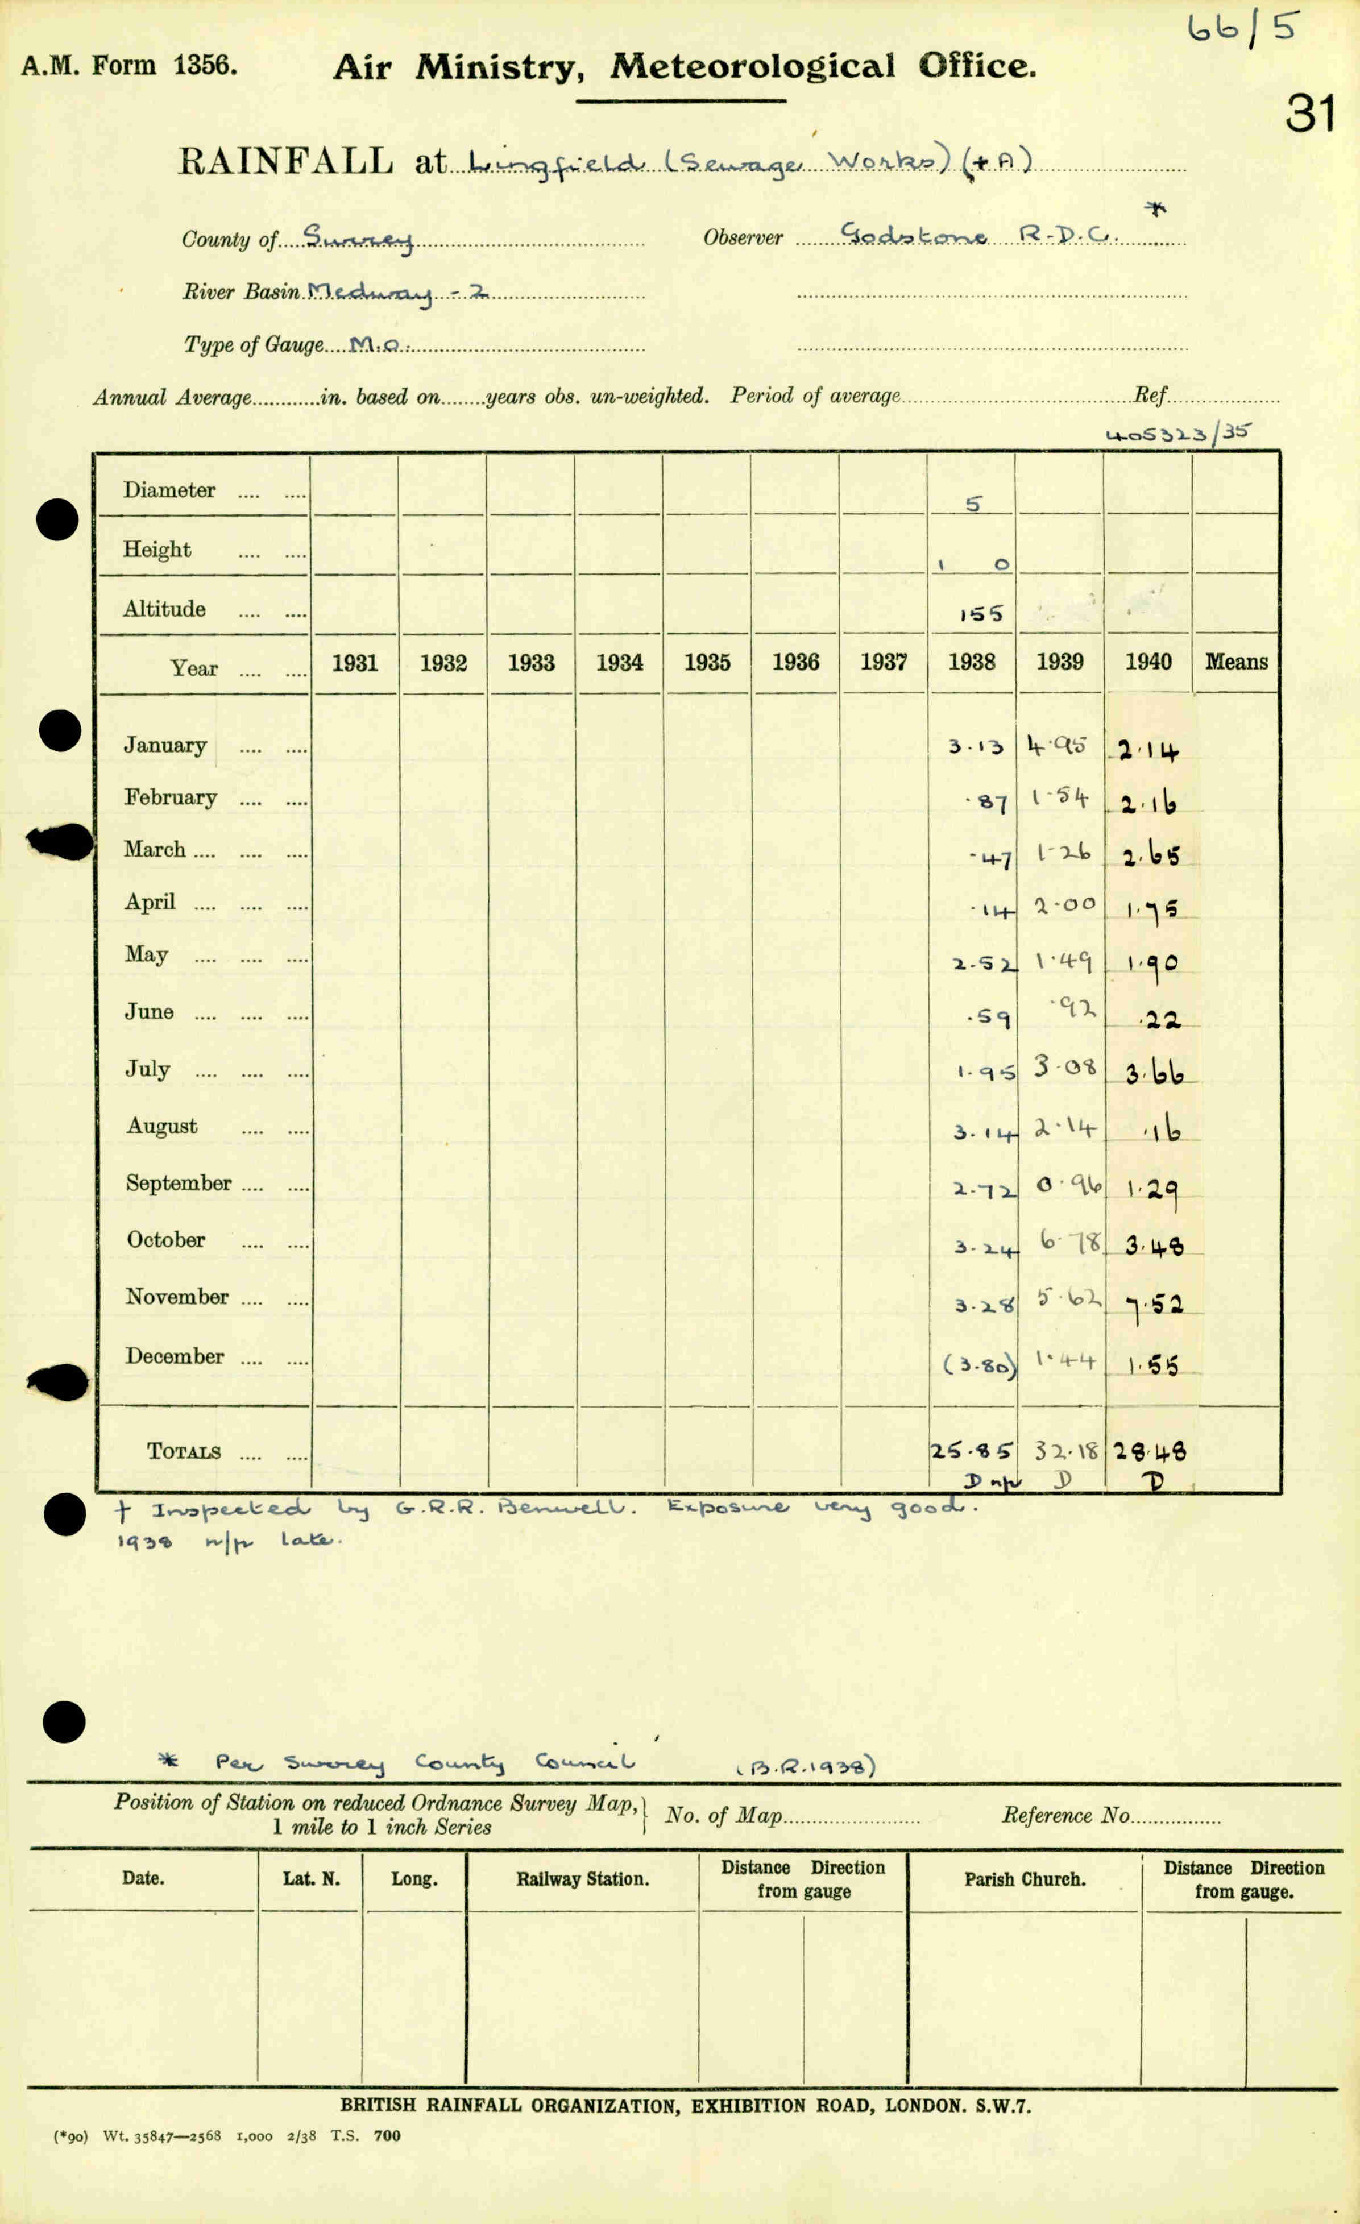 66/5
A.M. Form 1356. Air Ministry, Meteorological Office.
31
RAINFALL at Lingfield (Sewage Works) (+A)
*
County of Surrey Observer Godstone R.D.C.
River Basin Medway - 2
Type of Gauge M.O.
Annual Average in. based on years obs. un-weighted. Period of average Ref.
405323/35
Diameter 5
Height 1 0
Altitude 155
Year 1931 1932 1933 1934 1935 1936 1937 1938 1939 1940 Means
January 3.13 4.95 2.14
February .87 1.54 2.16
March .47 1.26 2.65
April .14 2.00 1.75
May 2.52 1.49 1.90
June .59 .92 .22
July 1.95 3.08 3.66
August 3.14 2.14 .16
September 2.72 0.96 1.29
October 3.24 6.78 3.48
November 3.28 5.62 7.52
December (3.80) 1.44 1.55
TOTALS 25.85 32.18 28.48
D n/r D D
† Inspected by G.R.R. Benwell. Exposure very good.
1938 n/r late.
* Per Surrey County Council (B.R.1938)
Position of Station on reduced Ordnance Survey Map, No. of Map Reference No.
1 mile to 1 inch Series
Date. Lat. N. Long. Railway Station. Distance Direction from gauge Parish Church. Distance Direction from gauge.
BRITISH RAINFALL ORGANIZATION, EXHIBITION ROAD, LONDON. S.W.7.
(*90) Wt. 35847—2568 1,000 2/38 T.S. 700